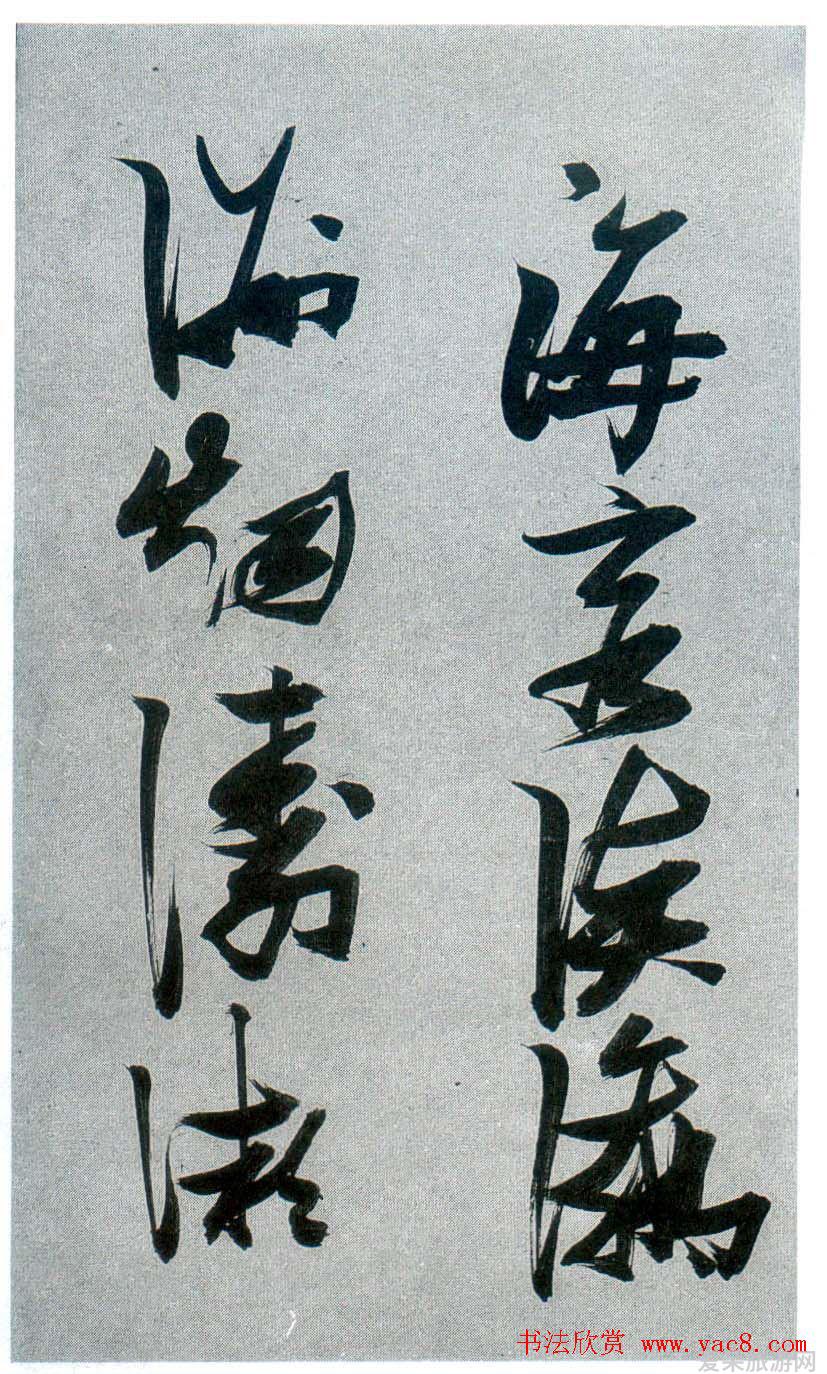 海客談瀛
洲烟濤微
书法欣赏 www.yac8.com